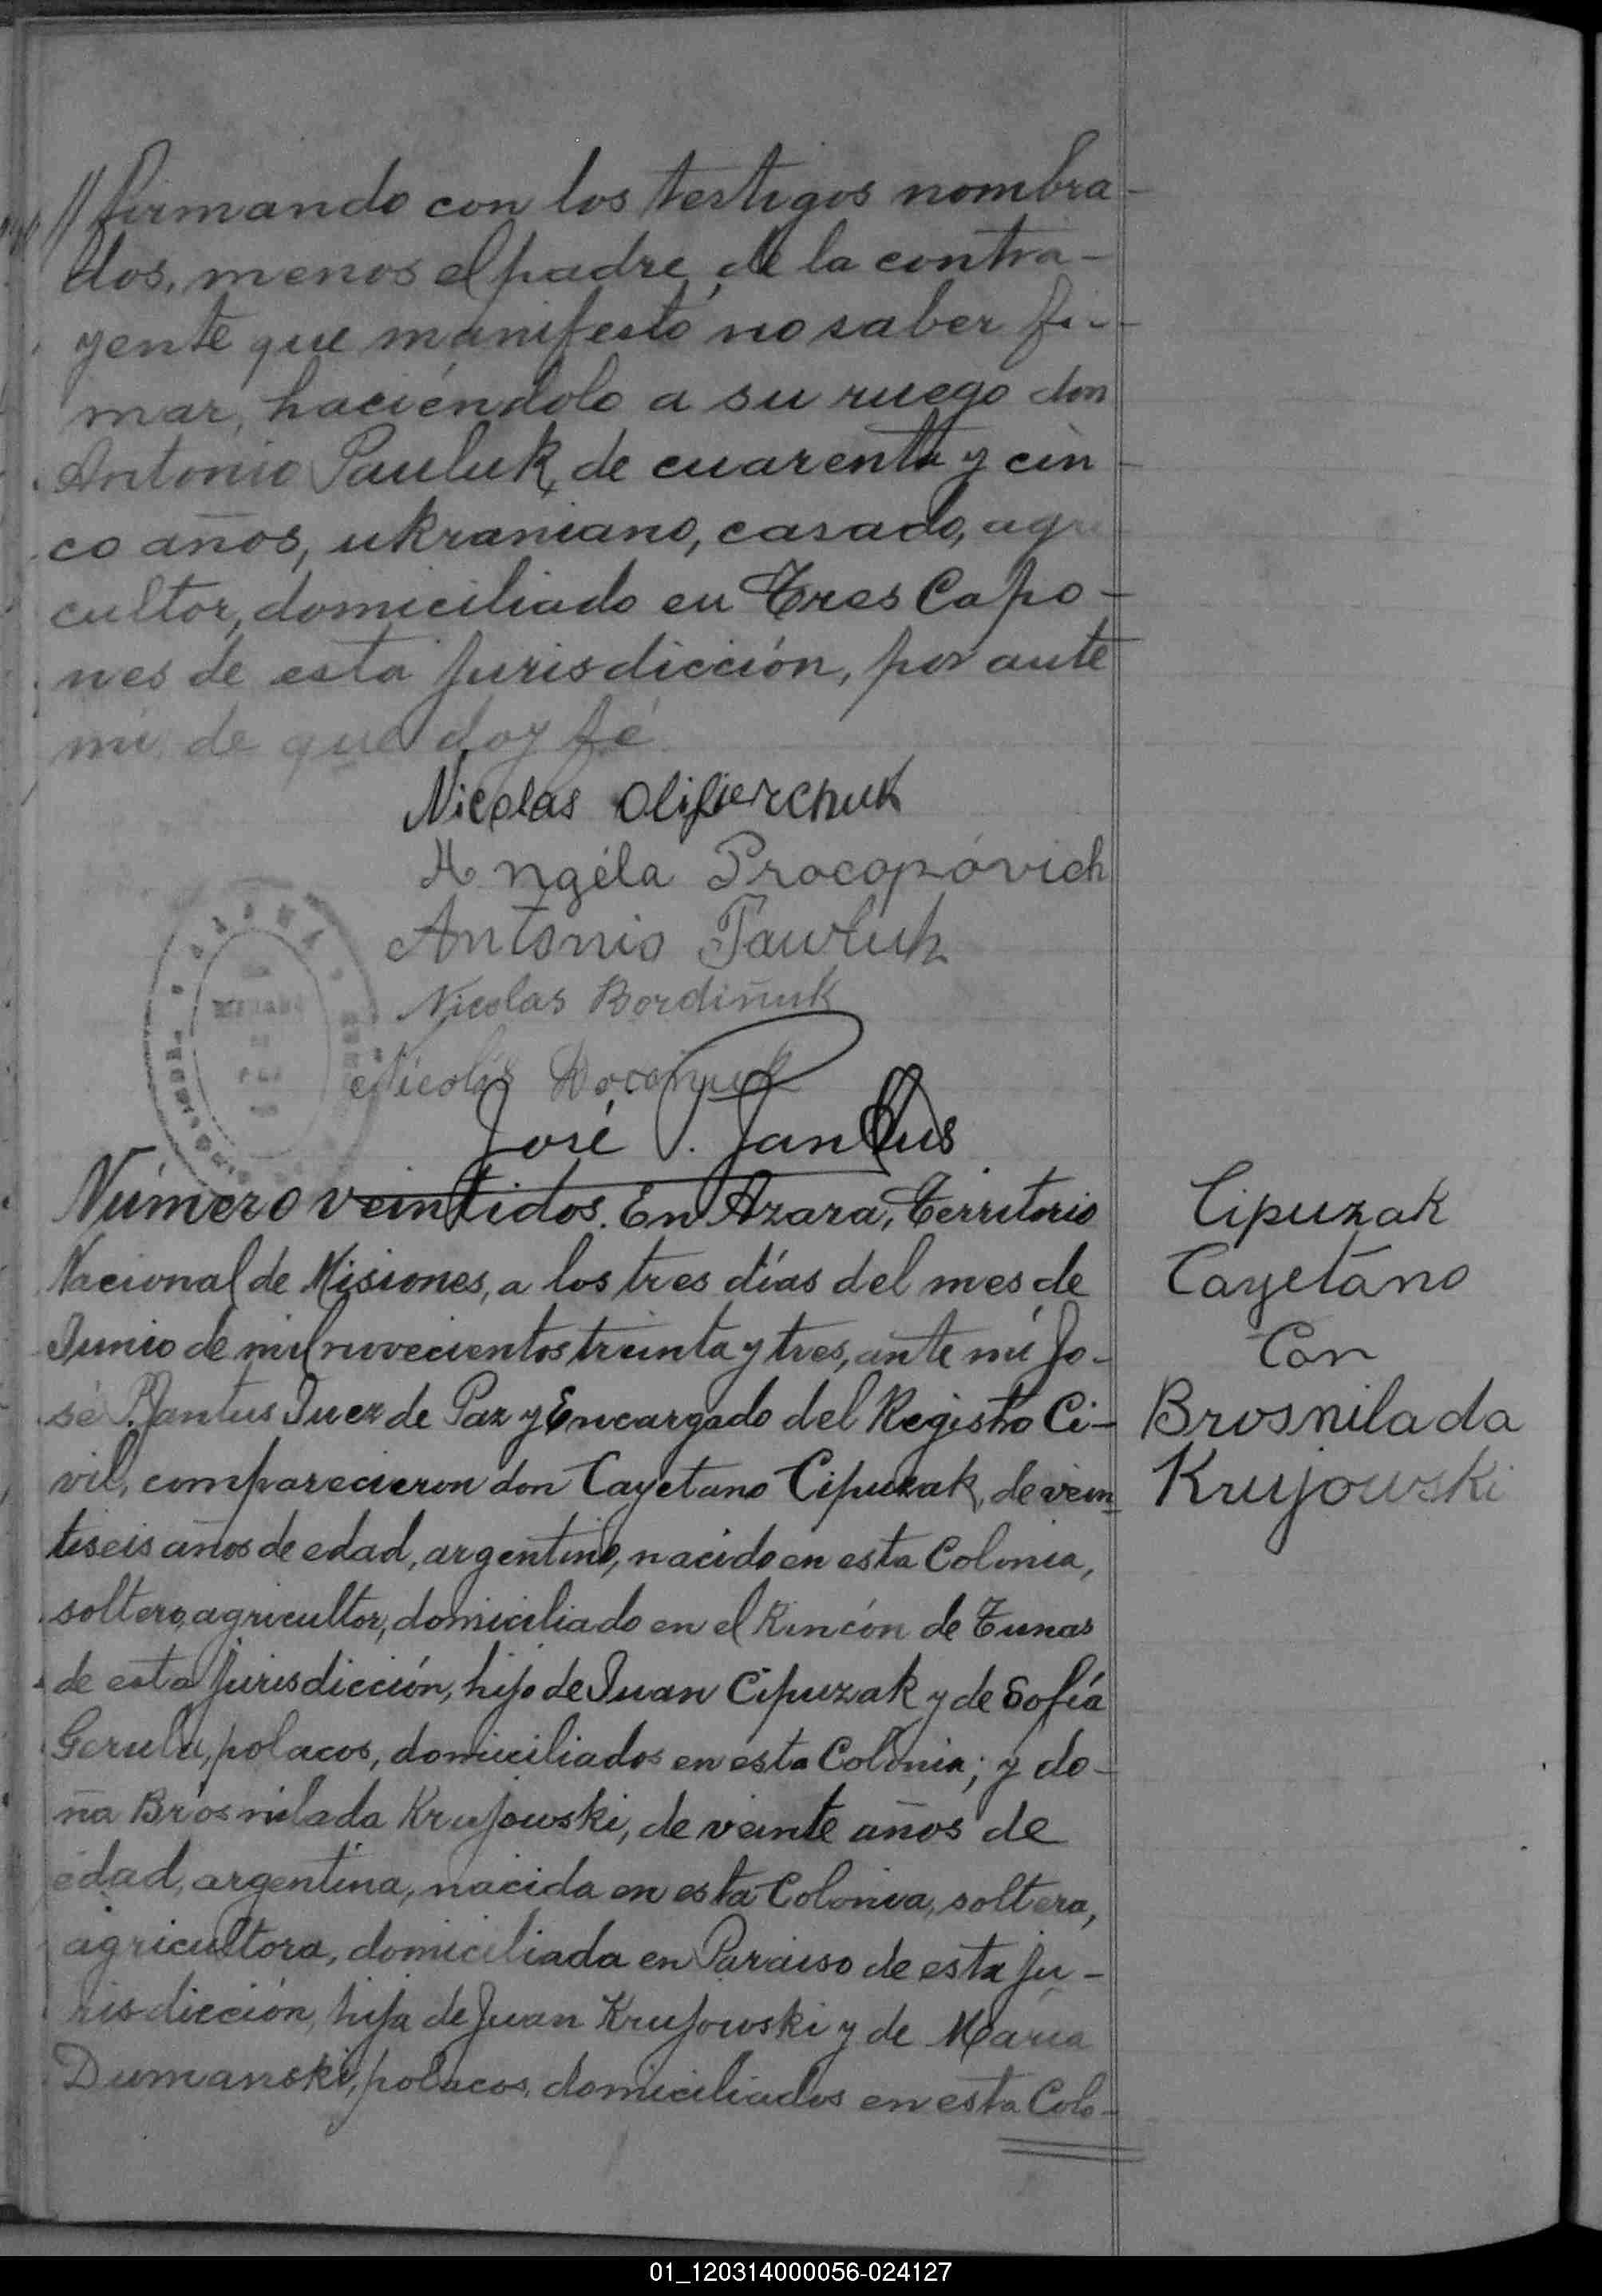 // firmando con los testigos nombra-
dos, menos el padre de la contra-
yente que manifestó no saber fir-
mar, haciéndolo a su ruego don
Antonio Pauluk, de cuarenta y cin-
co años, ukraniano, casado, agri
cultor, domiciliado en Tres Capo-
nes de esta jurisdicción, por ante
mi de que doy fé
Nicolas Olifierchuk
Angéla Procopóvich
Antonio Pawluk
Nicolas Bordiñuk
Nicolás
José P. Jantus
Número veintidos. En Azara, Territorio
Nacional de Misiones, a los tres días del mes de
Junio de mil novecientos treinta y tres, ante mí Jo-
sé P. Jantus Juez de Paz y Encargado del Registro Ci-
vil, comparecieron don Cayetano Cipuzak, de vein
tiseis años de edad, argentino, nacido en esta Colonia,
soltero, agricultor, domiciliado en el Rincón de Tunas
de esta jurisdicción, hijo de Juan Cipuzak y de Sofía
Gerula, polacos, domiciliados en esta Colonia; y do-
ña Brosnilada Krujowski, de veinte años de
edad, argentina, nacida en esta Colonia, soltera,
agricultora, domiciliada en Paraiso de esta ju-
risdicción, hija de Juan Krujowski y de María
Dumanski, polacos, domiciliados en esta Colo-
Cipuzak
Cayetano
Con
Brosnilada
Krujowski
01_120314000056-024127